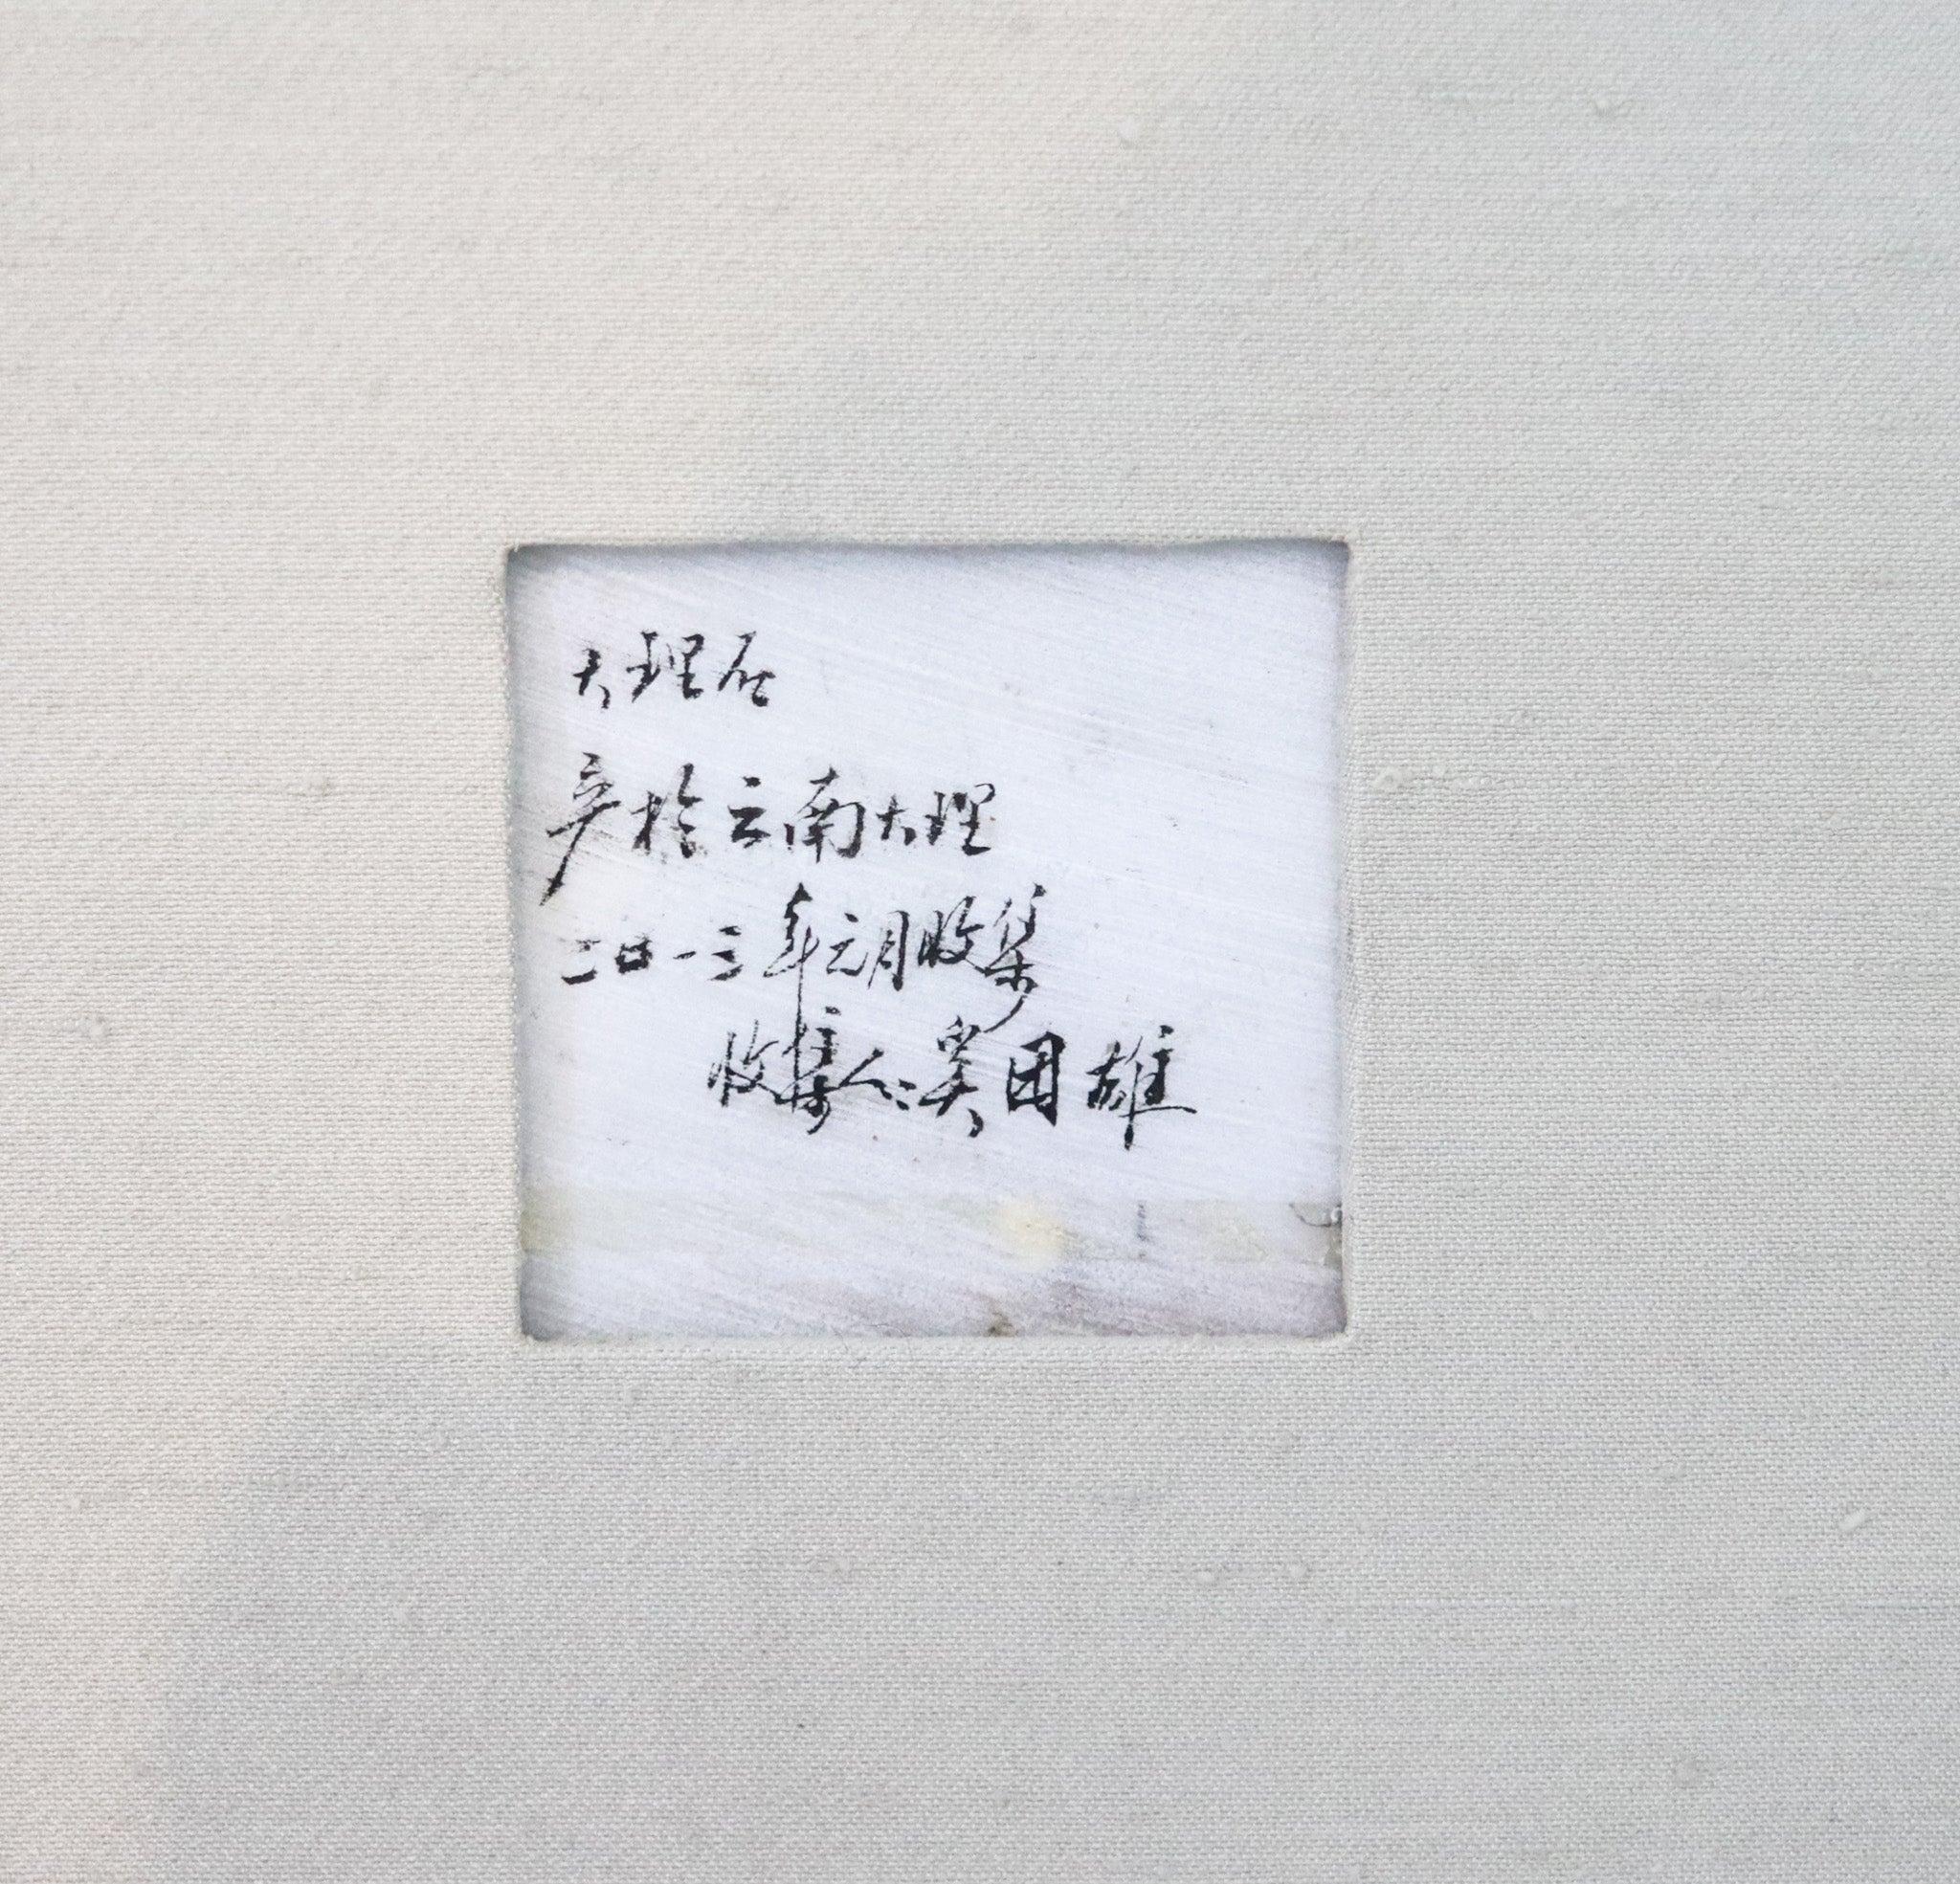 大理石
产於云南大理
二〇一三年元月收集
收集人:吴雄